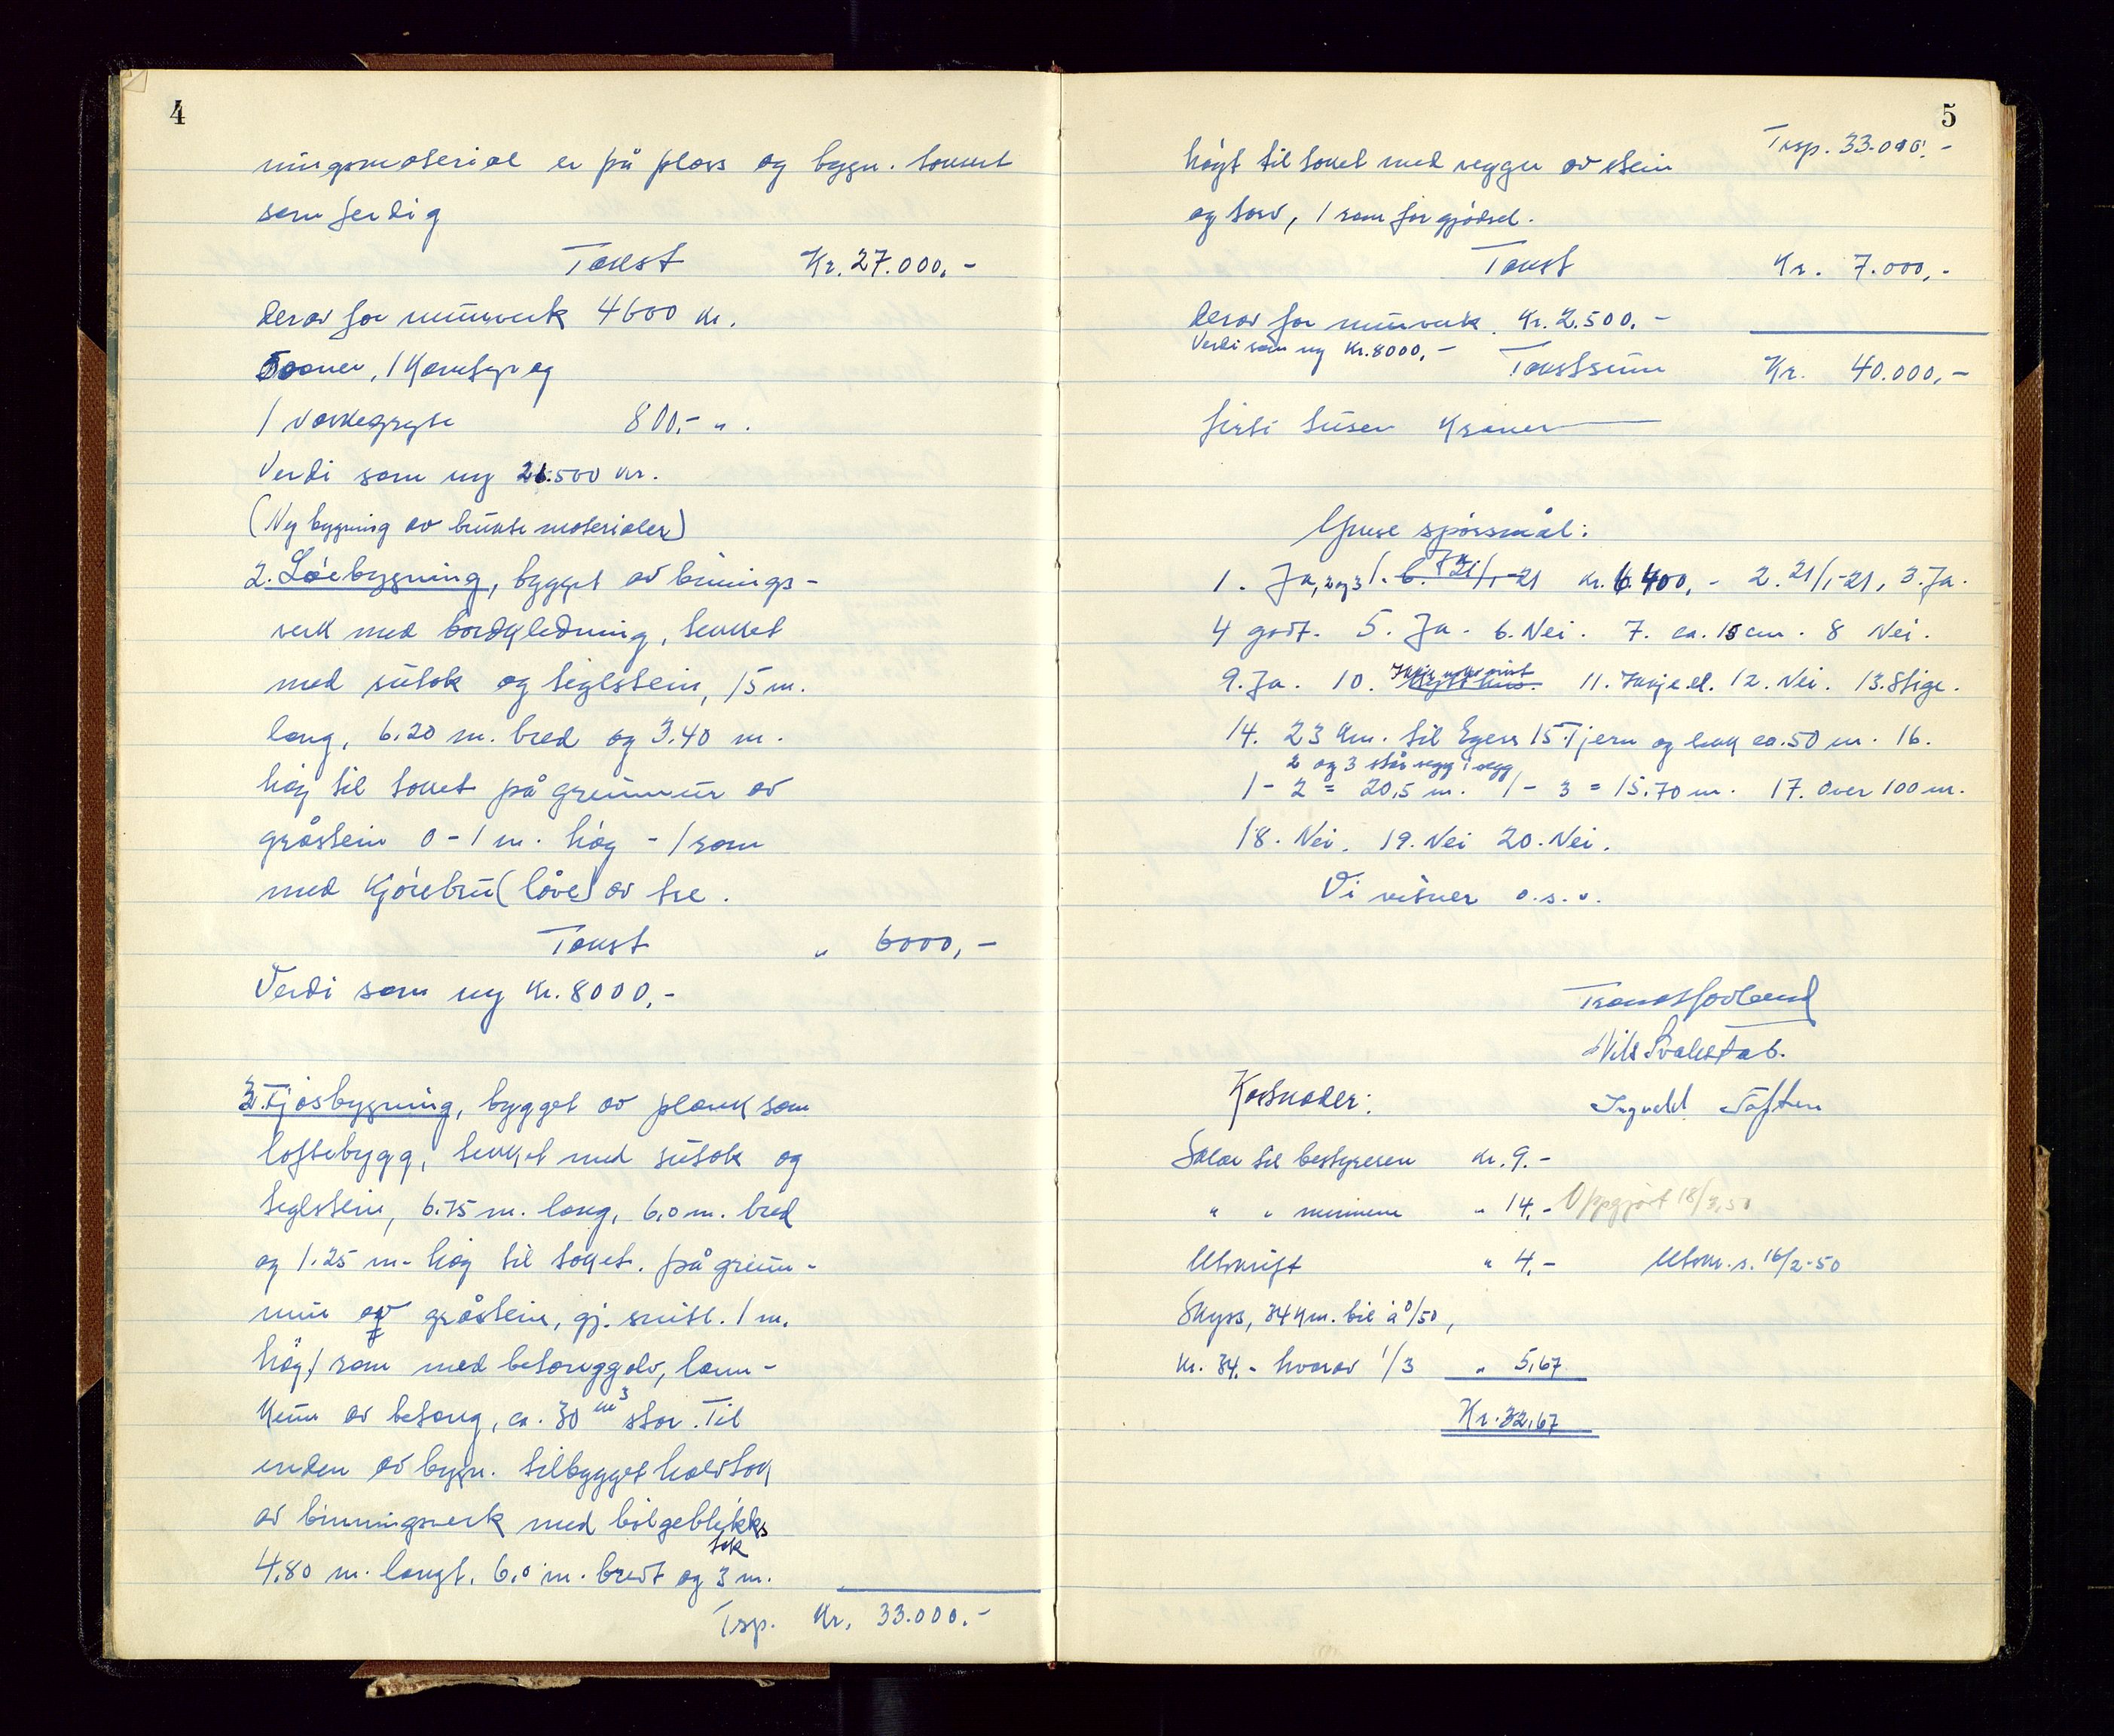 4
ningsmaterial er på plass og bygn. taksert
som ferdig
Takst Kr. 27.000,-
derav for murverk 4600 kr.
Komfyr og
800,- " .
Verdi som ny 500 kr.
(Ny bygning av brukte materialer)
2. Løebygning, bygget av binings-
verk med bordkledning, tekket
med sutak og teglstein, 15 m.
lang, 6.20 m. bred og 3.40 m.
høg til taket på grunnmur av
gråstein 0-1 m. høg - 1 rom
med kjørebru (låve) av tre.
Takst " 6000,-
Verdi som ny kr. 8000,-
3. Fjøsbygning, bygget av plank som
loftebygg, tekket med sutak og
teglstein, 6.75 m. lang, 6,0 m. bred
og 1.25 m. høg til taket. på grunn-
mur av gråstein, gj. snitl. 1 m.
høg, 1 rom med betonggolv, land-
kum av betong, ca. 30 m³ stor. Til
enden av bygn. tilbygget halvtak
av binningsverk med bølgeblikks
tak
4,80 m. langt, 6,0 m. bredt og 3 m.
Trsp. Kr. 33.000.-
5
Trsp. 33.000.-
høgt til taket med vegger av stein
og torv, 1 rom for gjødsel.
Takst Kr. 7.000,-
derav for murverk. Kr. 2.500,-
Verdi som ny Kr. 8000,-
Takstsum Kr. 40.000,-
førti tusen kroner
Ymse spørsmål:
1. Ja, 21/1-21 kr. 6.400,- 2. 21/1-21, 3. Ja.
4 godt. 5. Ja. 6. Nei. 7. ca. 15 cm. 8 Nei.
9. Ja. 10. 11. Ikkje el. 12. Nei. 13. Stige.
14. 23 km. til Egers 15. Tjern og bekk ca. 50 m. 16.
2 og 3 står vegg i vegg
1 - 2 = 20,5 m. 1 - 3 = 15.70 m. 17. Over 100 m.
18. Nei. 19. Nei 20. Nei.
Vi vitner o.s.v.
Nils Svalestad.
Ingvald Tåften
Kostnader:
Salær til bestyreren kr. 9.-
" " mennene " 14.- Oppgjort 18/3.50
Utskrift " 4.- Utskr. s. 16/2-50
Skyss, 34 km. bil à 0/50,
kr. 34.- hvorav 1/3 " 5,67
Kr. 32,67